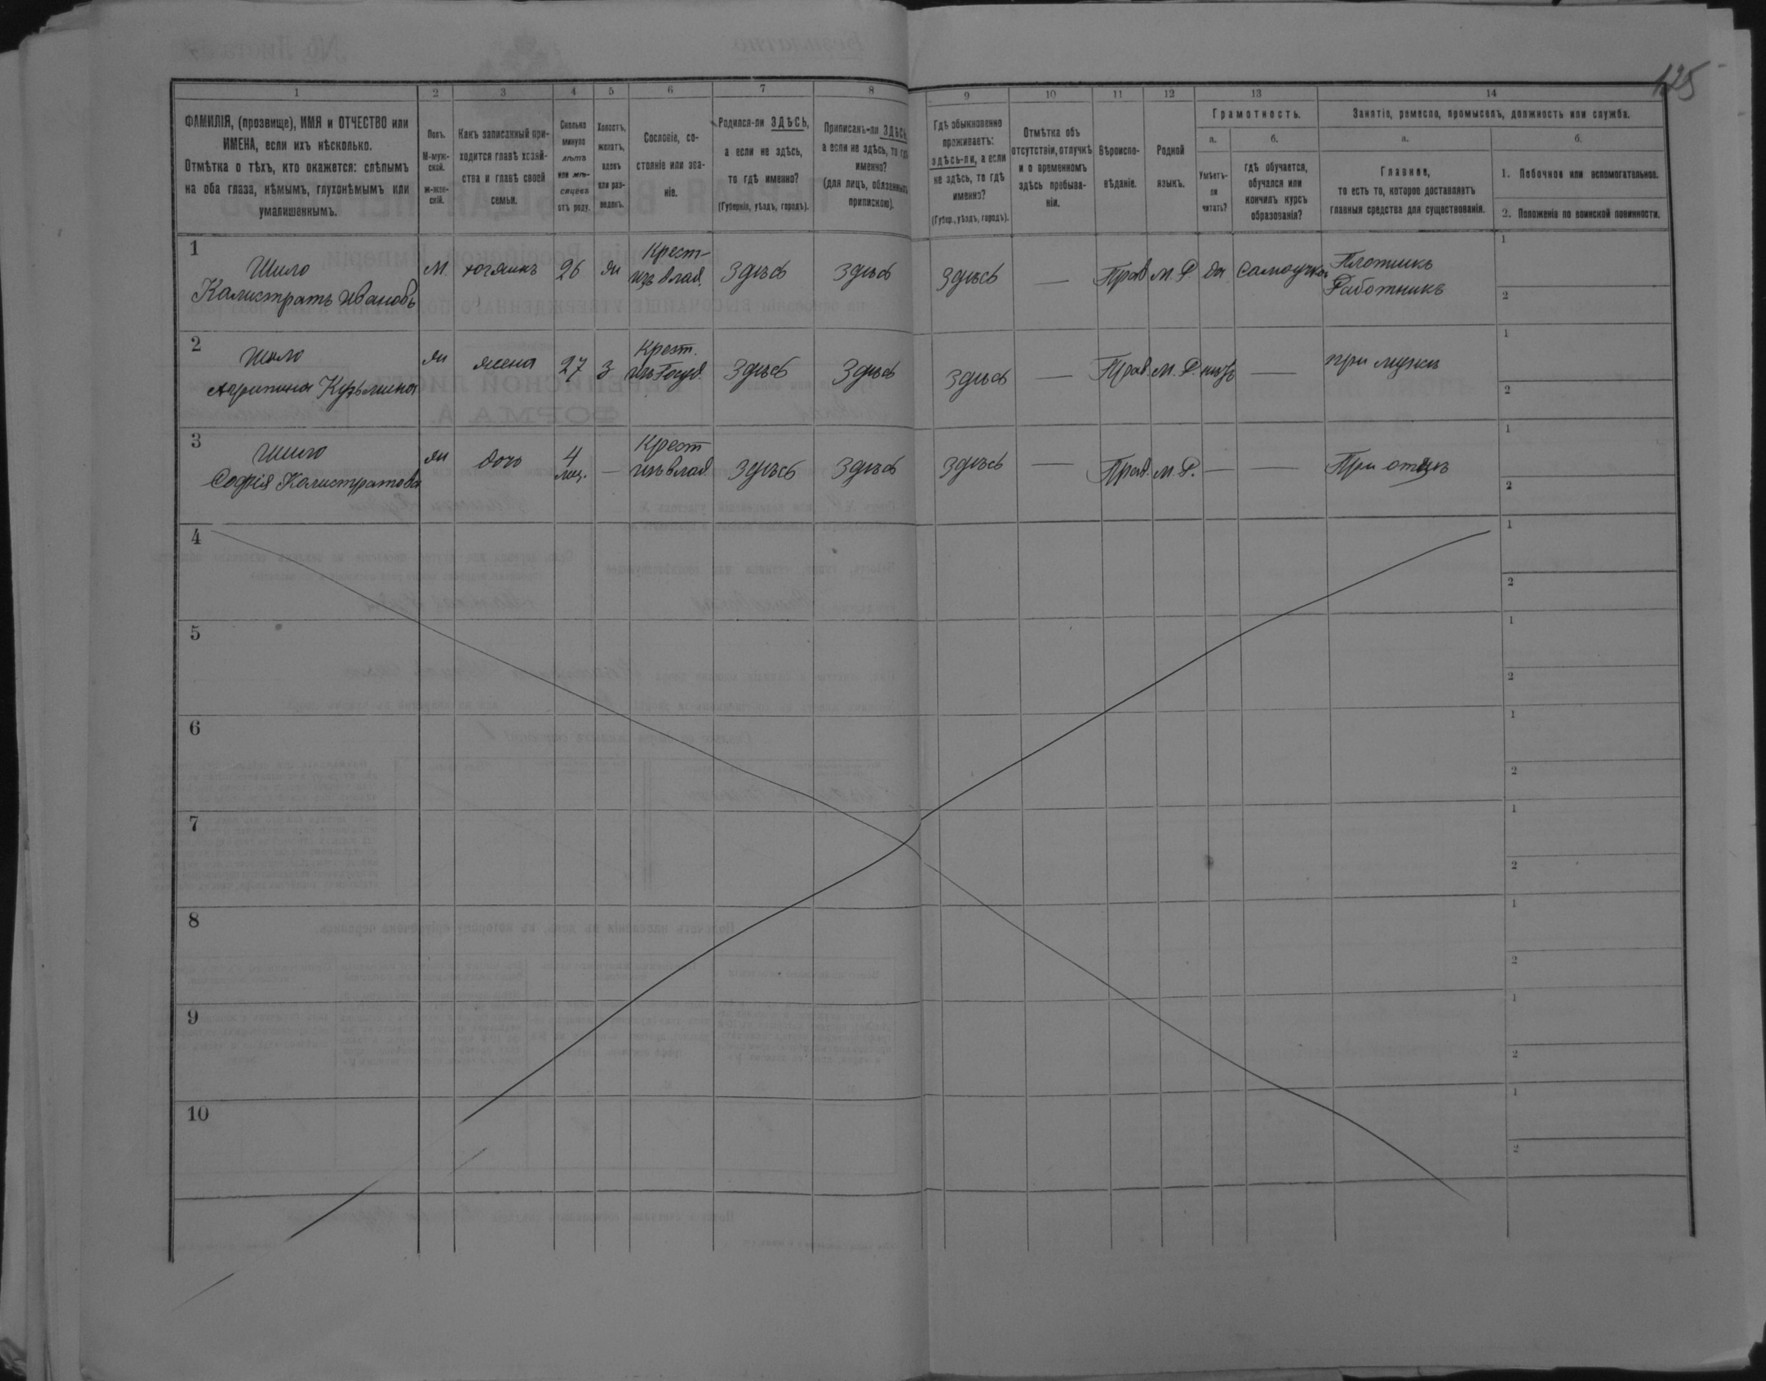 125
1 2 3 4 5 6 7 8 9 10 11 12 13 14
ФАМИЛІЯ, (прозвище), ИМЯ и ОТЧЕСТВО или
ИМЕНА, если ихъ нѣсколько.
Отмѣтка о тѣхъ, кто окажется: слѣпымъ
на оба глаза, нѣмымъ, глухонѣмымъ или
умалишеннымъ.
Полъ.
М-муж-
ской.
ж-жен-
скій.
Какъ записанный при-
ходится главѣ хозяй-
ства и главѣ своей
семьи.
Сколько
минуло
лѣтъ
или мѣ-
сяцевъ
отъ роду.
Холостъ,
женатъ,
вдовъ
или раз-
веденъ.
Сословіе, со-
стояніе или зва-
ніе.
Родился-ли ЗДѢСЬ,
а если не здѣсь,
то гдѣ именно?
(Губернія, уѣздъ, городъ).
Приписанъ-ли ЗДѢСЬ,
а если не здѣсь, то гдѣ
именно?
(для лицъ, обязанныхъ
припискою).
Гдѣ обыкновенно
проживаетъ:
здѣсь-ли, а если
не здѣсь, то гдѣ
именно?
(Губер., уѣздъ, городъ).
Отмѣтка объ
отсутствіи, отлучкѣ
и о временномъ
здѣсь пребыва-
ніи.
Вѣроиспо-
вѣданіе.
Родной
языкъ.
Грамотность.
а.
Умѣетъ-
ли
читать?
б.
гдѣ обучается,
обучался или
кончилъ курсъ
образованія?
Занятіе, ремесло, промыселъ, должность или служба.
а.
Главное,
то есть то, которое доставляетъ
главныя средства для существованія.
б.
1. Побочное или вспомогательное.
2. Положеніе по воинской повинности.
1
Шило
Калистратъ Ивановъ
М. хозяинъ 26 ж
Крест-
изъ влад.
здѣсь здѣсь здѣсь — Прав М.Р да самоучка
Плотникъ
Работникъ
1
2
2
Шило
Агрипина Кузьмина
ж жена 27 з
Крест.
изъ Госуд.
здѣсь здѣсь здѣсь — Прав М.Р. нѣтъ —
при мужи
1
2
3
Шило
Софія Калистратова
ж дочь 4
мѣц. —
Крест
изъ влад
здѣсь здѣсь здѣсь — Прав М.Р. — —
При отцѣ
1
2
4
1
2
5
1
2
6
1
2
7
1
2
8
1
2
9
1
2
10
1
2